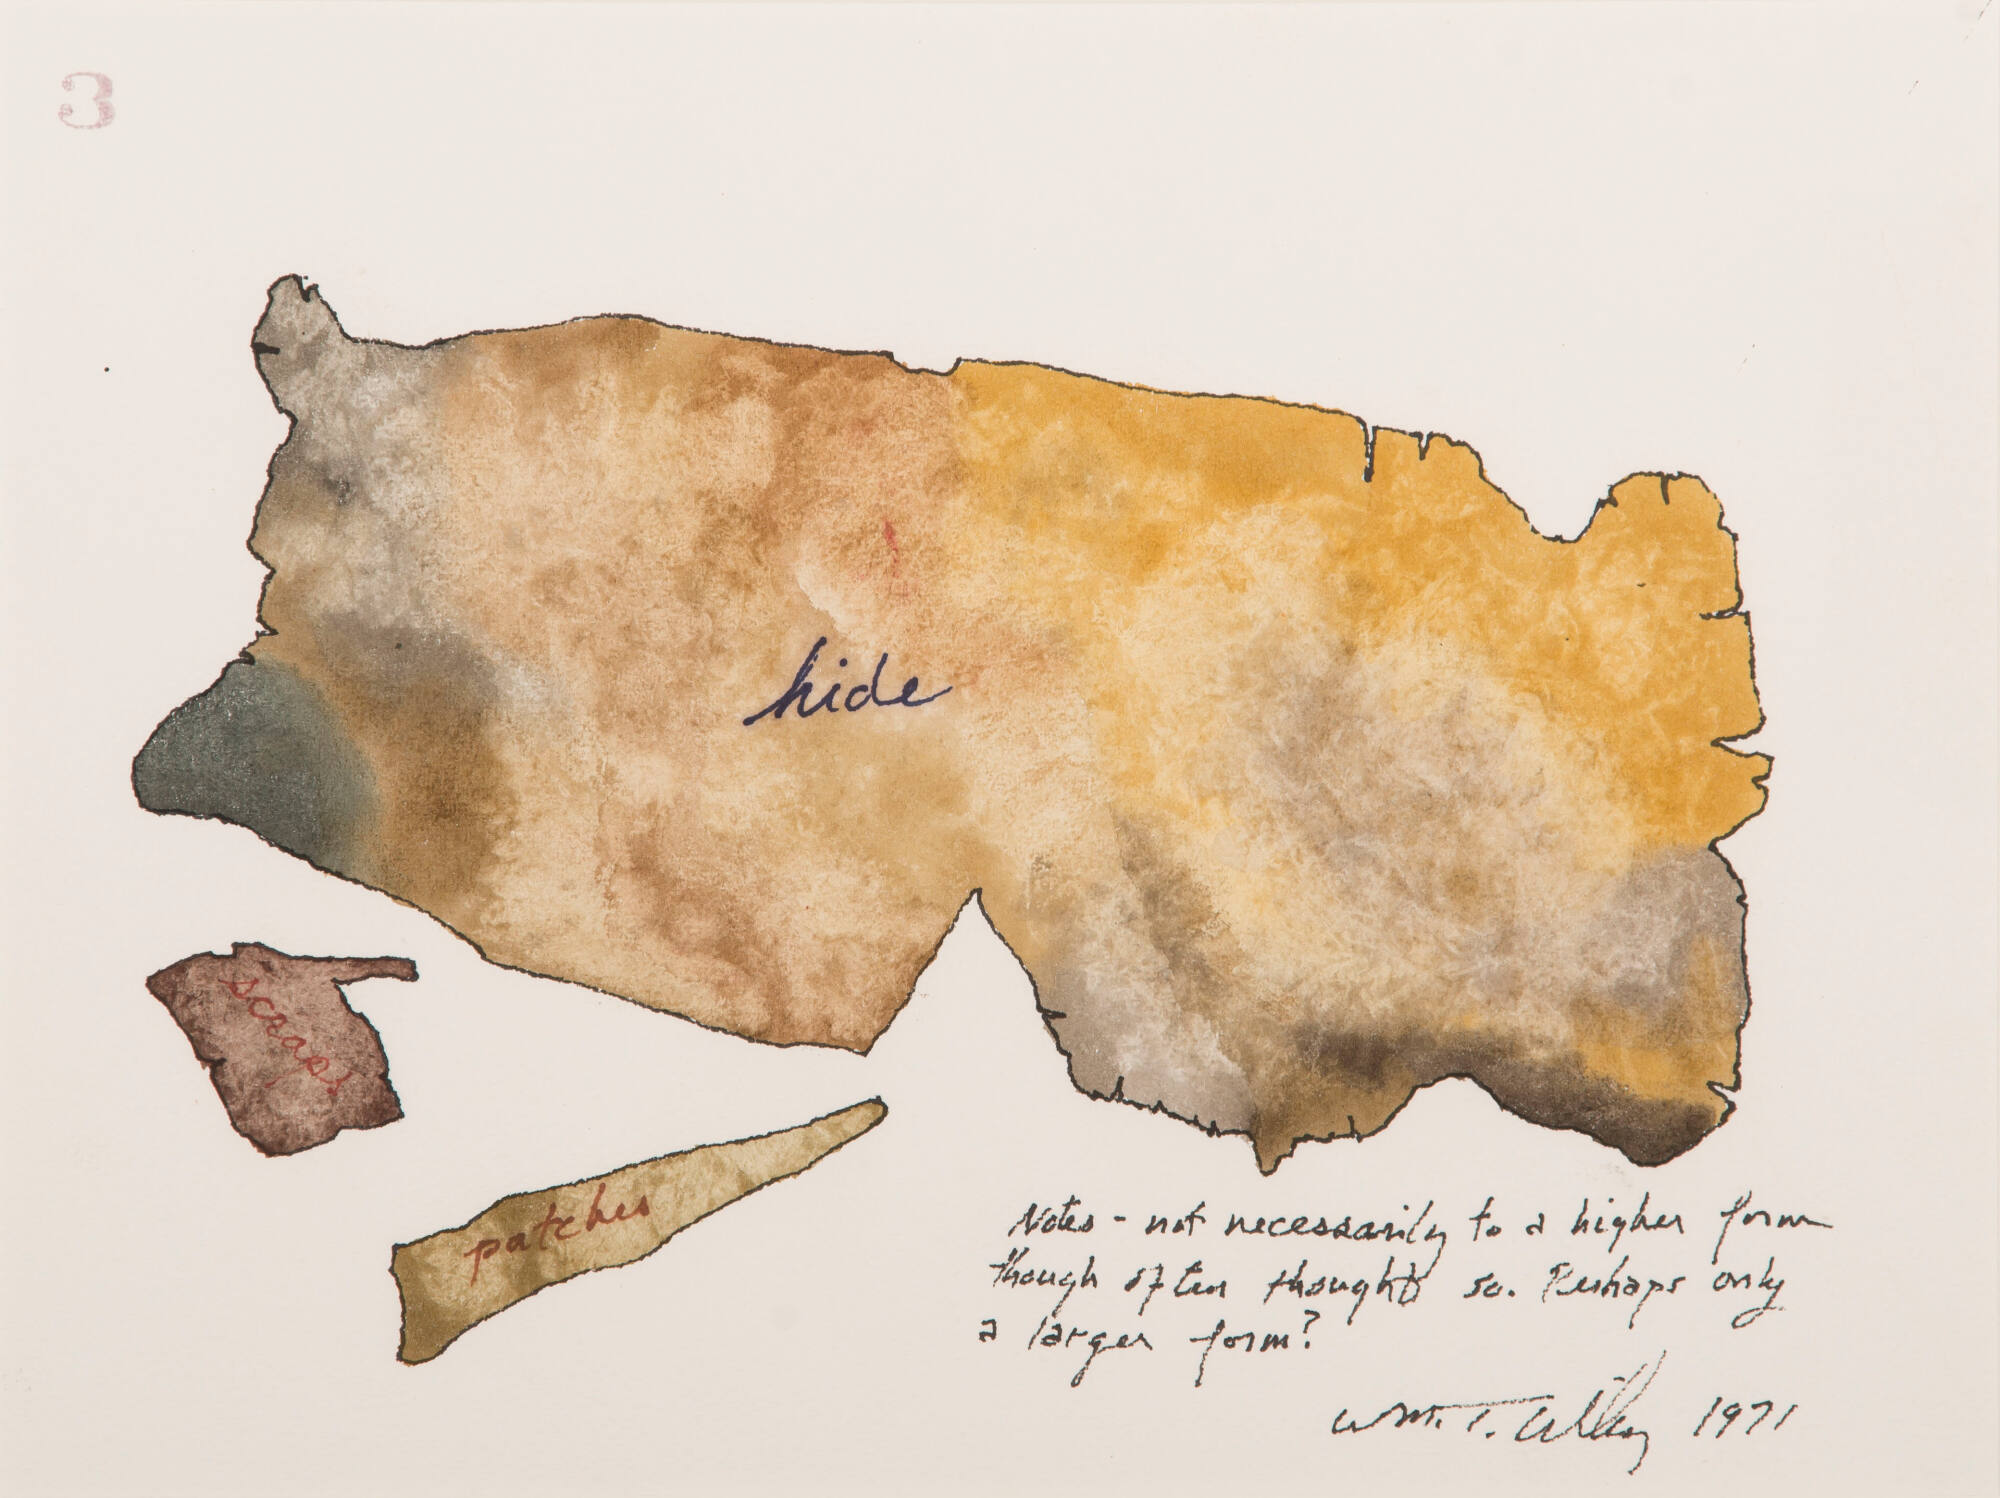 3
hide
scraps
patches
Notes - not necessarily to a higher form
though often thought so. Perhaps only
a larger form?
Wm. T. Wiley 1971